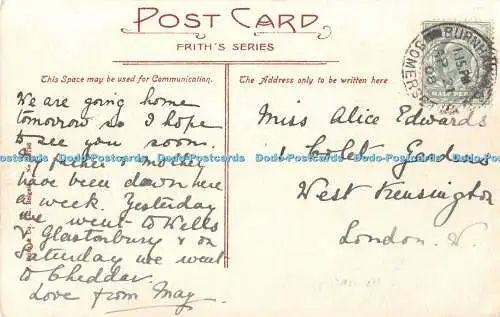 POST CARD
FRITH'S SERIES
This Space may be used for Communication.
The Address only to be written here
We are going home
tomorrow so I hope
to see you soon.
Father & mother
have been down here
a week. Yesterday
we went to Wells
& Glastonbury & on
Saturday we went
to Cheddar.
Love from May
Miss Alice Edwards
1 Colet Gardens
West Kensington
London. W.
BURNHAM
SOMERSET
HALF PENNY
Dodo-Postcards Dodo-Postcards Dodo-Postcards Dodo-Postcards Dodo-Postcards Dodo-Postcards